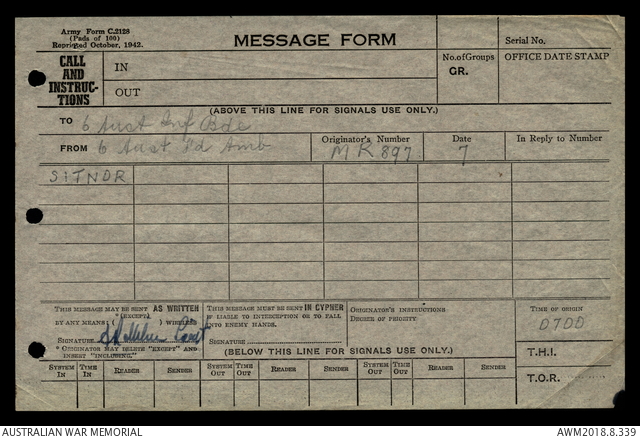 Army Form C.2128
(Pads of 100)
Reprinted October, 1942.
MESSAGE FORM
Serial No.
CALL AND INSTRUCTIONS
IN
OUT
No. of Groups
GR.
OFFICE DATE STAMP
(ABOVE THIS LINE FOR SIGNALS USE ONLY.)
TO 6 Aust Inf Bde
FROM 6 Aust Fd Amb
Originator's Number
MR 897
Date
7
In Reply to Number
SITNDR
THIS MESSAGE MAY BE SENT AS WRITTEN
*(EXCEPT)
BY ANY MEANS ( ) WIRELESS
SIGNATURE Capt
* ORIGINATOR MAY DELETE "EXCEPT" AND
INSERT "INCLUDING."
THIS MESSAGE MUST BE SENT IN CYPHER
IF LIABLE TO INTERCEPTION OR TO FALL
INTO ENEMY HANDS.
SIGNATURE
ORIGINATOR'S INSTRUCTIONS
DEGREE OF PRIORITY
TIME OF ORIGIN
0700
(BELOW THIS LINE FOR SIGNALS USE ONLY.)
T.H.I.
T.O.R.
SYSTEM IN TIME IN READER SENDER SYSTEM OUT TIME OUT READER SENDER SYSTEM OUT TIME OUT READER SENDER
AUSTRALIAN WAR MEMORIAL
AWM2018.8.339